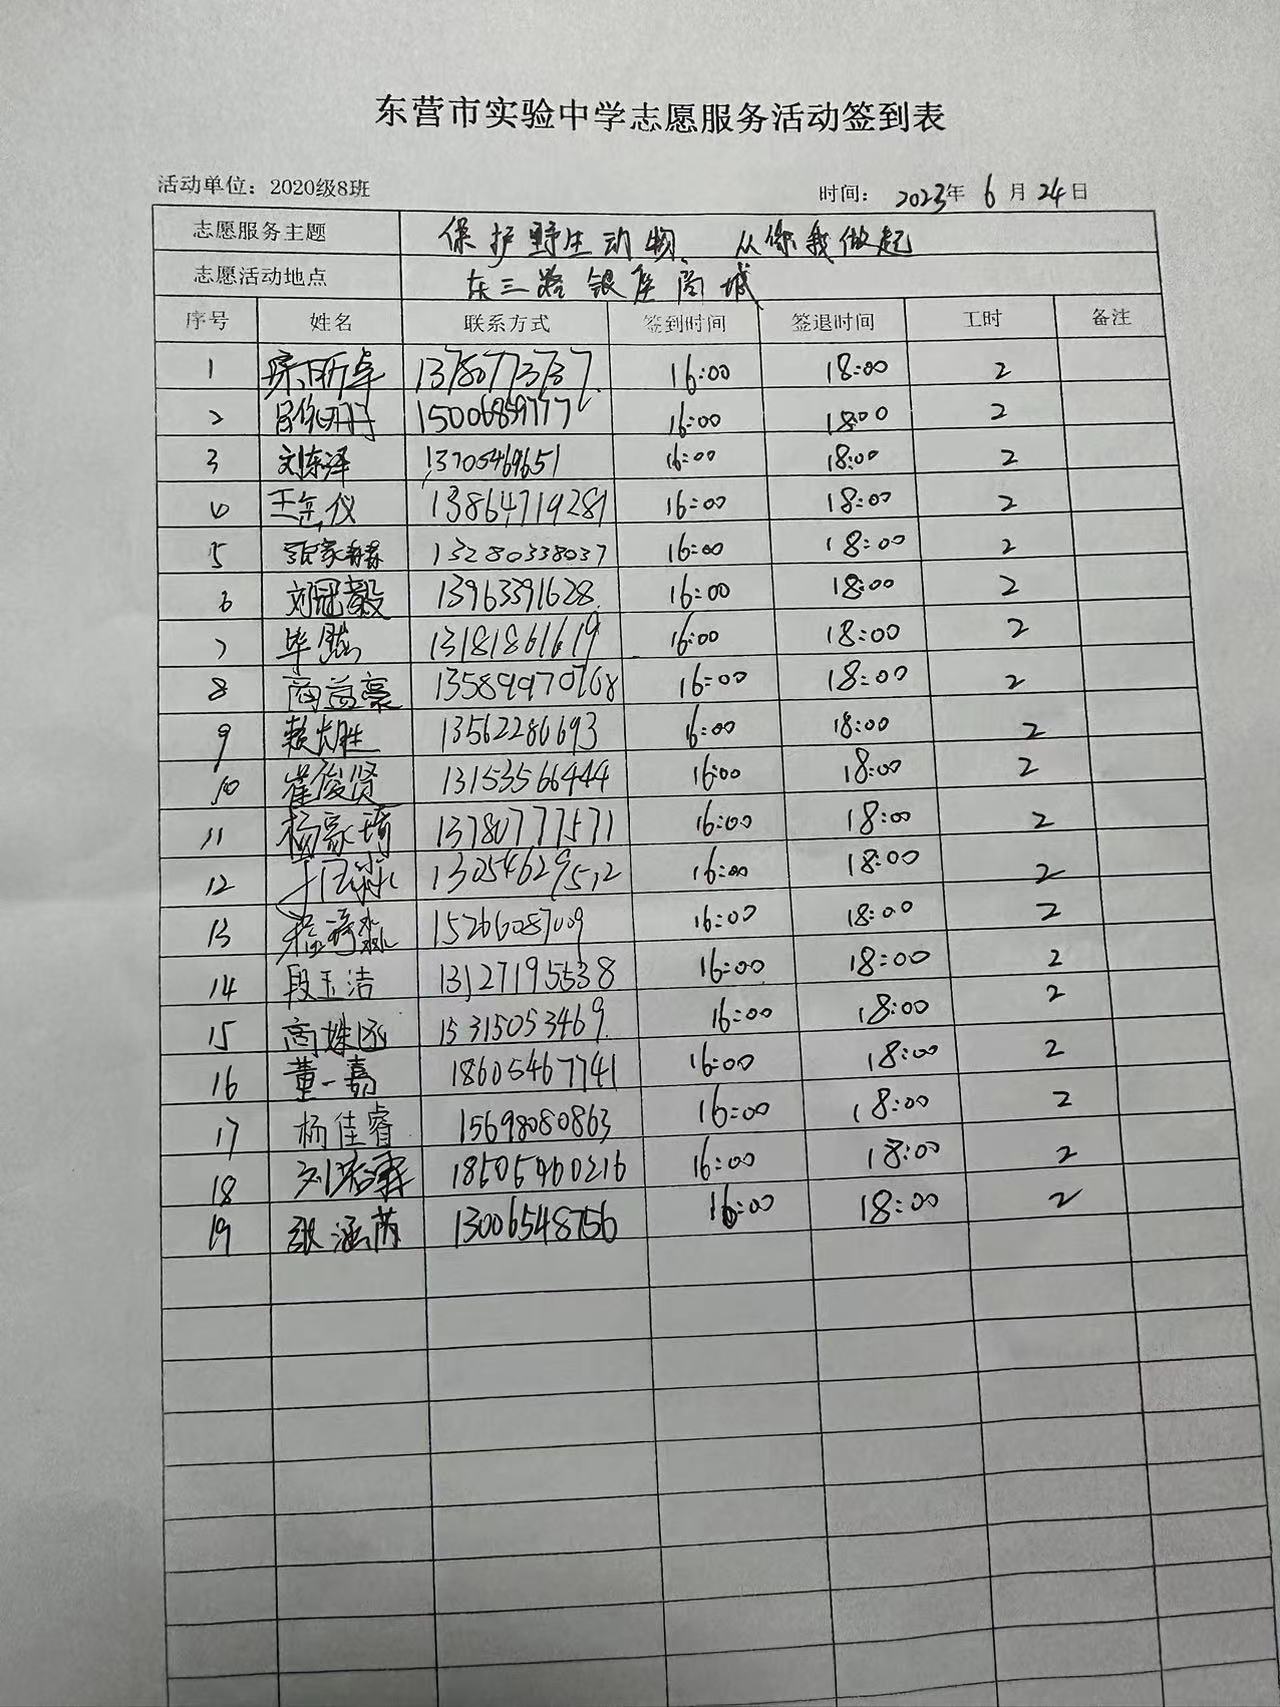 东营市实验中学志愿服务活动签到表
活动单位：2020级8班 时间：2023年 6 月 24 日
志愿服务主题 保护野生动物、从你我做起
志愿活动地点 东三路银座商城
序号 姓名 联系方式 签到时间 签退时间 工时 备注
1 13780773737 16:00 18:00 2
2 15006859777 16:00 18:00 2
3 刘东泽 13705469651 16:00 18:00 2
4 13864719281 16:00 18:00 2
5 13280338037 16:00 18:00 2
6 刘冠毅 13963391628 16:00 18:00 2
7 毕 13181861619 16:00 18:00 2
8 商益豪 13589970768 16:00 18:00 2
9 13562286693 16:00 18:00 2
10 崔俊贤 13153566444 16:00 18:00 2
11 杨家琦 13780777571 16:00 18:00 2
12 13054629512 16:00 18:00 2
13 15266087009 16:00 18:00 2
14 段玉洁 13127195538 16:00 18:00 2
15 商姝函 15315053469 16:00 18:00 2
16 董一嘉 18605467741 16:00 18:00 2
17 杨佳睿 15698080863 16:00 18:00 2
18 18505460216 16:00 18:00 2
19 张涵芮 13006548756 16:00 18:00 2